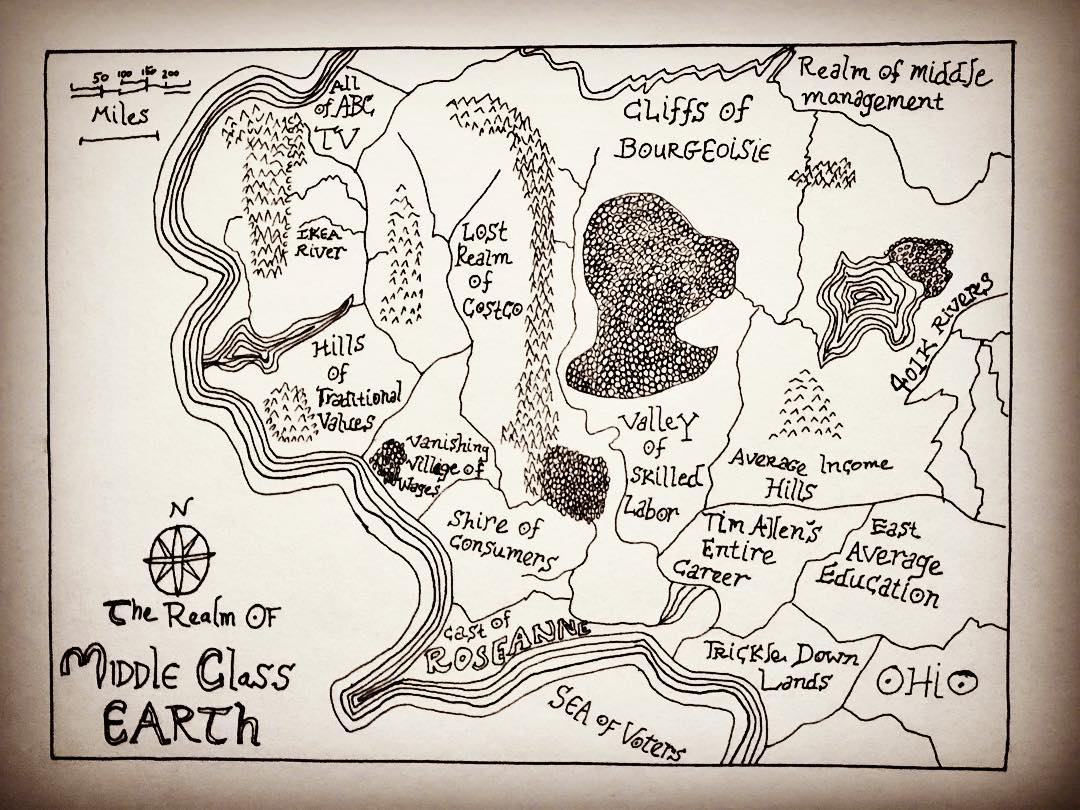 50 100 150 200
Miles
All
of ABC
TV
CLiffs of
BOURGEOISIE
Realm of middle
management
IKEA
River
Lost
Realm
of
COSTCO
401K RIVERS
Hills
of
Traditional
Values
Vanishing
Village of
Wages
Valley
of
Skilled
Labor
Average Income
Hills
Shire of
Consumers
Tim Allen's
Entire
Career
East
Average
Education
Cast of
ROSEANNE
Trickle Down
Lands
OHiO
SEA of Voters
N
The Realm OF
Middle Class
EARTh